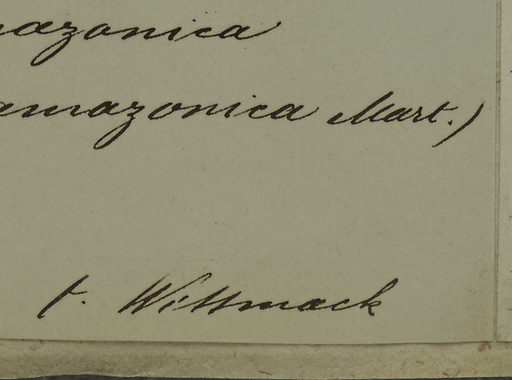 mazonica
amazonica Mart.)
t. Wittmack